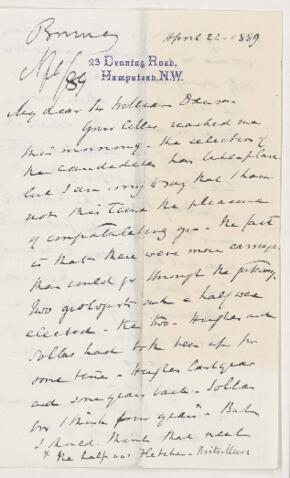 Bonney
Apl/89
April 22. 1889
23 Denning Road,
Hampstead. N.W.
My dear Sir William Dawson
Your letter reached me
this morning. The election of
the candidates has taken place
but I am sorry to say that I have
not this time the pleasure
of congratulating you. The fact
is that there were more carriages
than could go through the gateway.
Two geologists and a half were
elected. The two - Hughes and
Sollas had both been up for
some time - Hughes last year
and some years back - Sollas
for I think four years x But
I should think that next
x the half was Fletcher - Brit. Mus